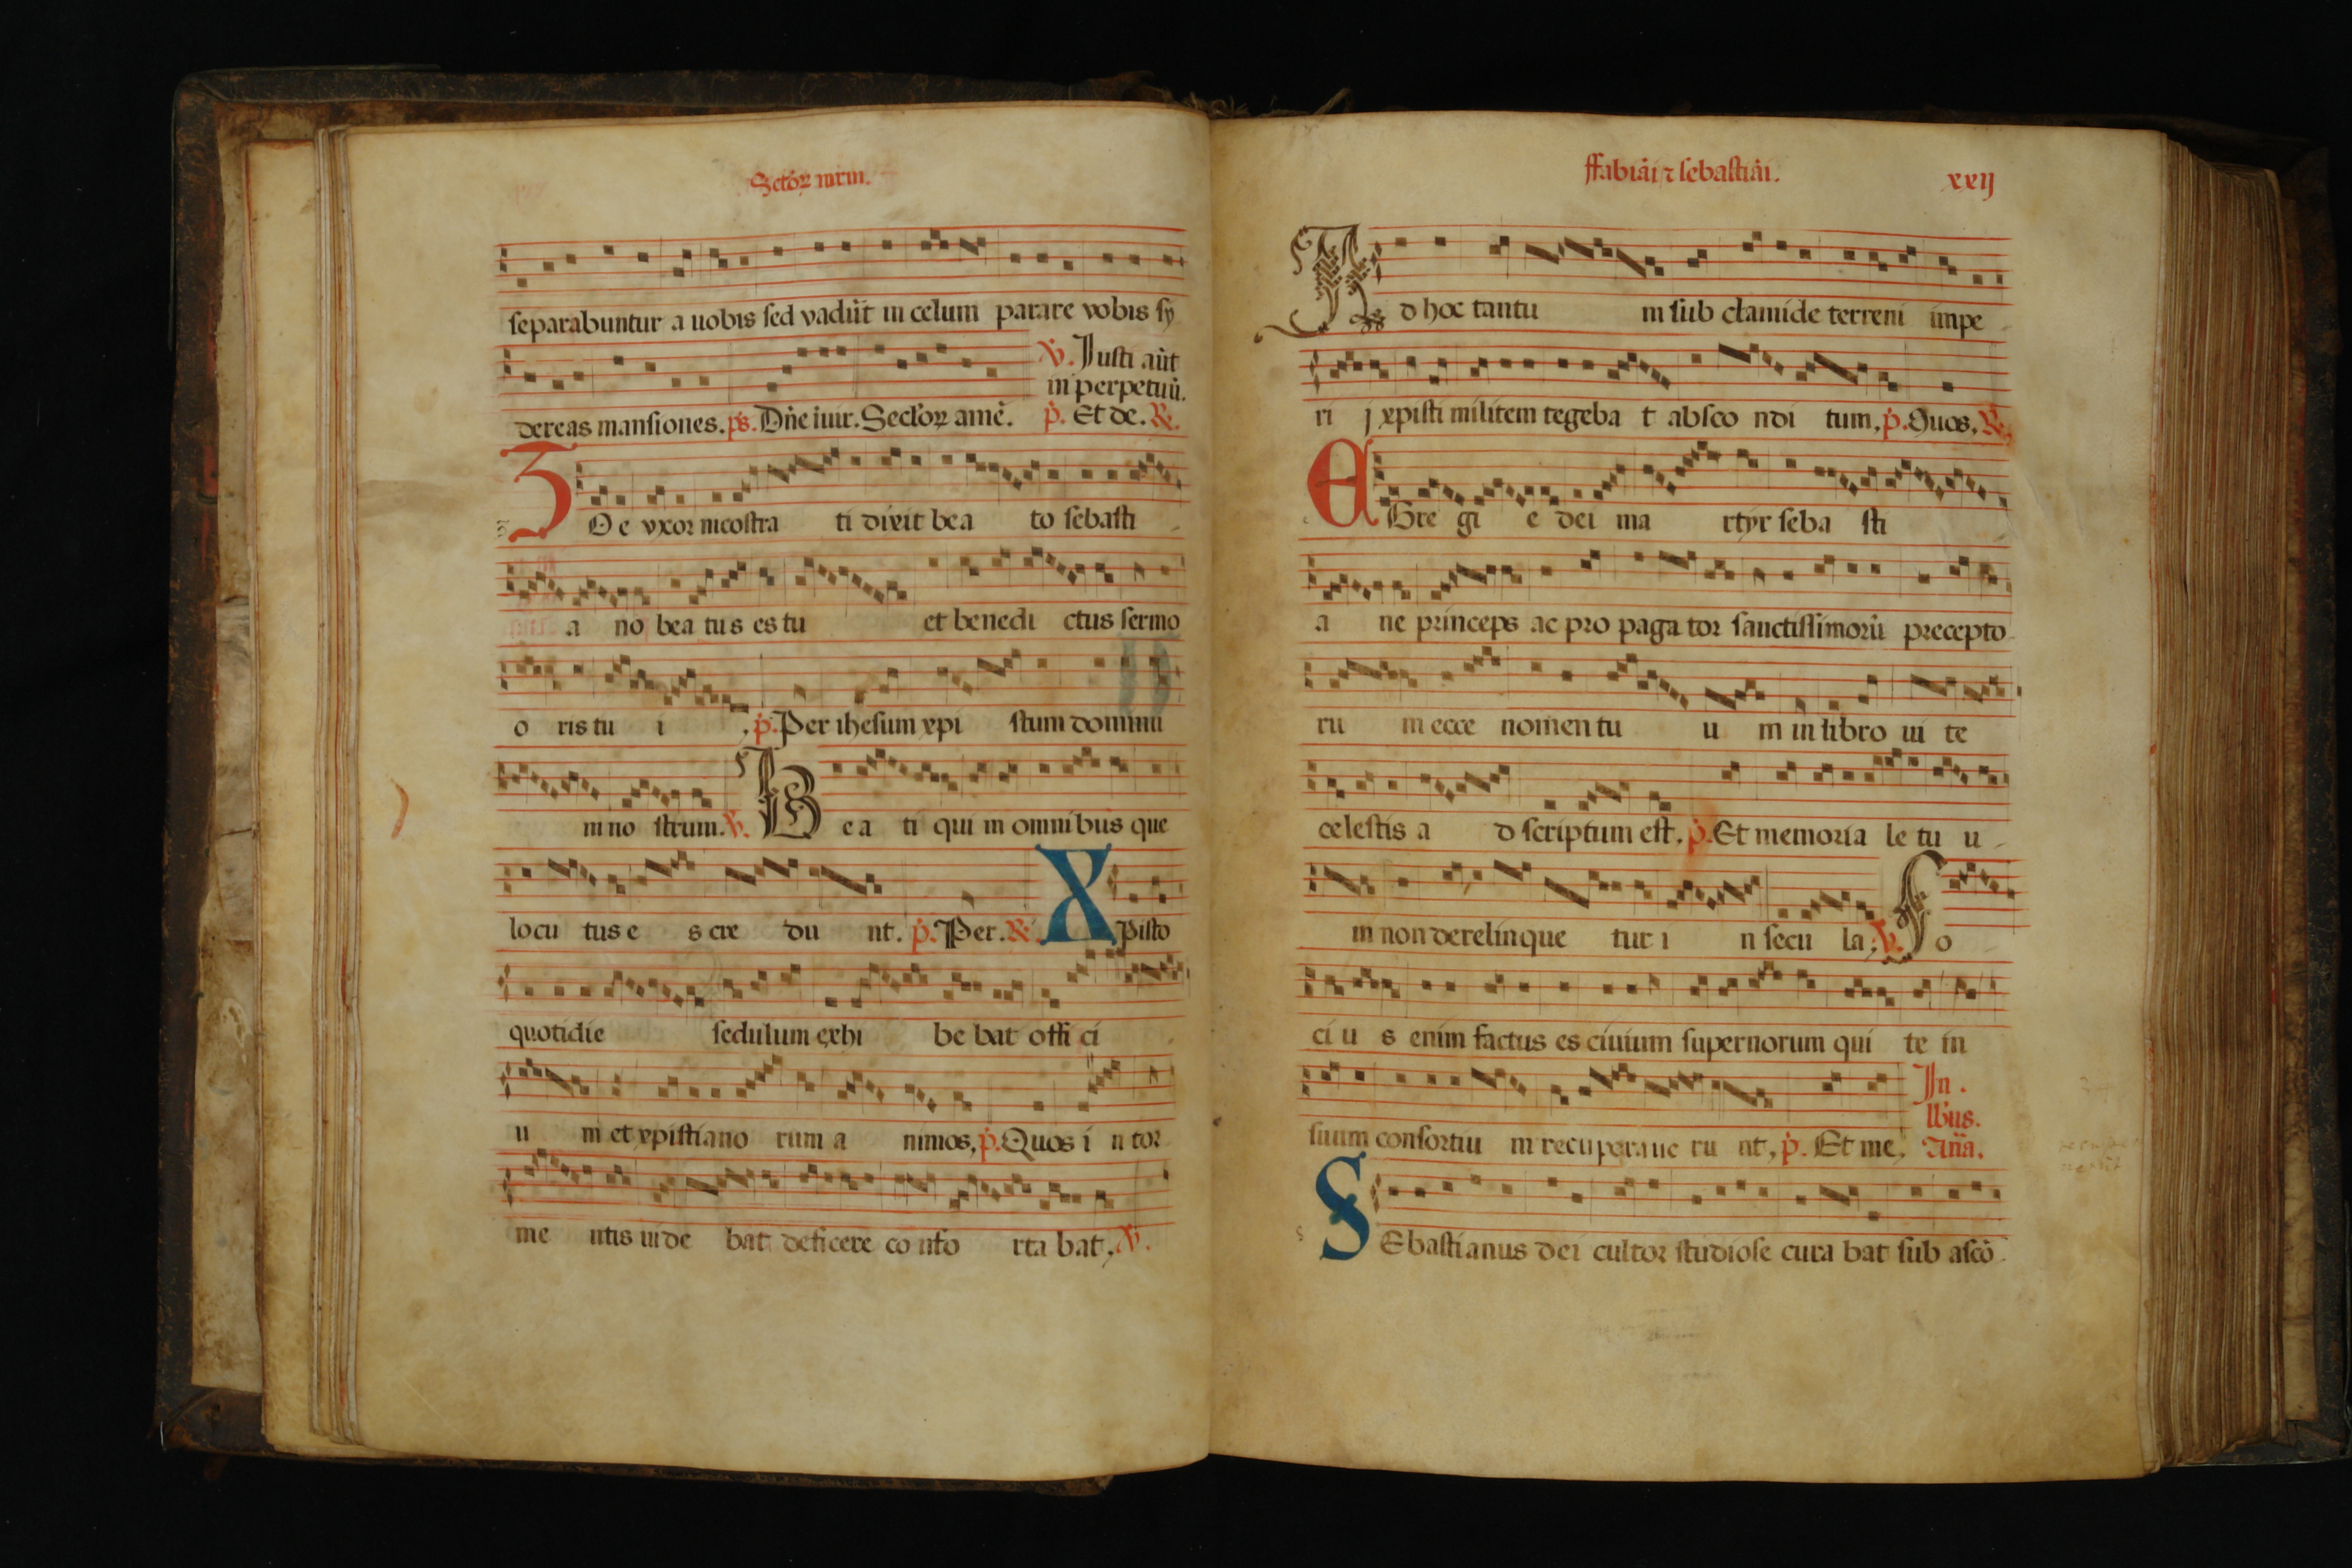 Sctoꝝ mrm.
separabuntur a uobis sed vadūt in celum parare vobis sy
℣. Iusti aūt
in perpetuū.
dereas mansiones. ps. Dn̄e iuir. Sctoꝝ amē. p. Et de. ℟.
ZOe vxor nicostra ti dixit bea to sebasti
a no bea tus es tu et benedi ctus sermo
o ris tu i . p. Per ihesum xpi stum dominu
m no strum. ℣. Bea ti qui in omnibus que
locu tus e s cre du nt. p. Per. ℟. XPisto
quotidie sedulum exhi be bat offi ci
u m et xpistiano rum a nimos, p. Quos i n tor
me ntis uide bat deficere co nfo rta bat, ℣.
ffabiāi ⁊ sebastiāi.
xxij
Ad hoc tantu m sub clamide terreni impe
ri j xpisti militem tegeba t absco ndi tum, p. Quos, ℟.
EGre gi e dei ma rtyr seba sti
a ne princeps ac pro paga tor sanctissimorū precepto
ru m ecce nomen tu u m in libro ui te
celestis a d scriptum est. p. Et memoria le tu u
m non derelinque tur i n secu la, ℣. So
ci u s enim factus es ciuium supernorum qui te in
In .
lb'us.
suum consortiu m recuperaue ru nt, p. Et me, An̄a.
SEbastianus dei cultor studiose cura bat sub ascō